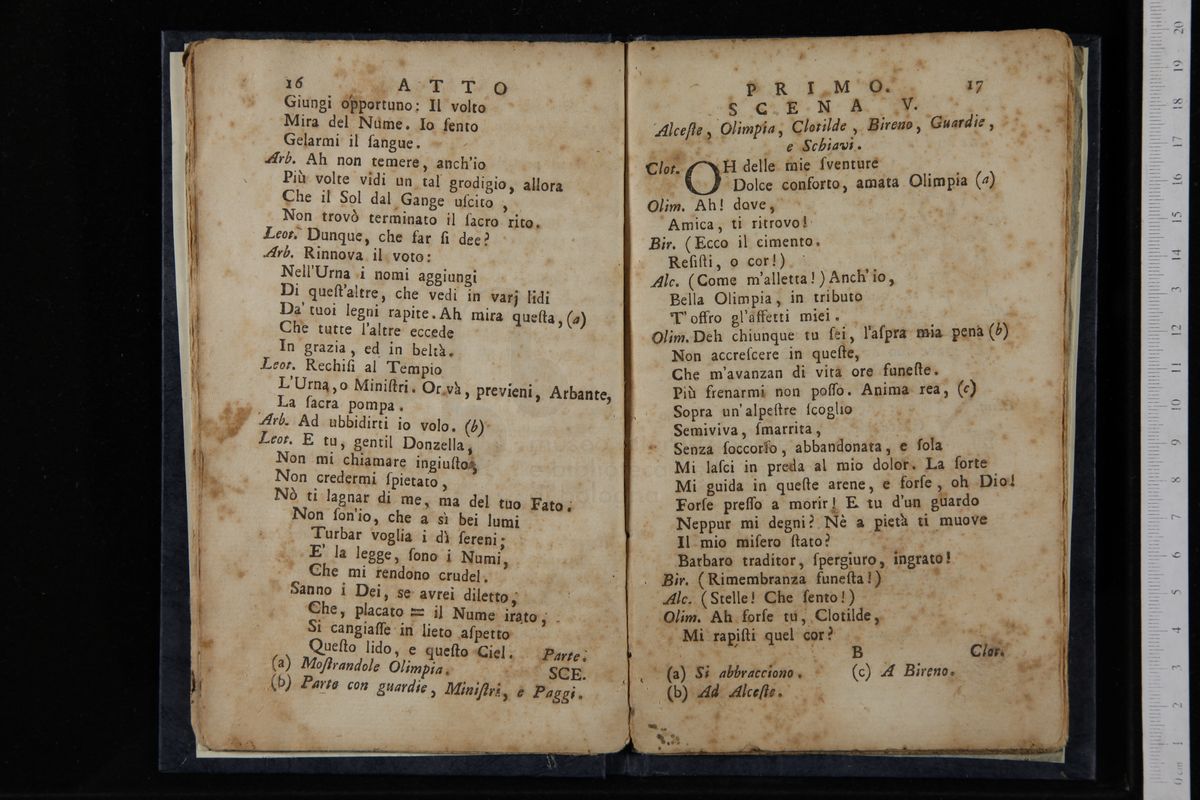 16 ATTO
Giungi opportuno: Il volto
Mira del Nume. Io ſento
Gelarmi il ſangue.
Arb. Ah non temere, anch'io
Più volte vidi un tal grodigio, allora
Che il Sol dal Gange uſcito,
Non trovò terminato il ſacro rito.
Leot. Dunque, che far ſi dee?
Arb. Rinnova il voto:
Nell'Urna i nomi aggiungi
Di queſt'altre, che vedi in varj lidi
Da' tuoi legni rapite. Ah mira queſta, (a)
Che tutte l'altre eccede
In grazia, ed in beltà.
Leot. Rechiſi al Tempio
L'Urna, o Miniſtri. Or và, previeni, Arbante,
La ſacra pompa.
Arb. Ad ubbidirti io volo. (b)
Leot. E tu, gentil Donzella,
Non mi chiamare ingiuſto,
Non credermi ſpietato,
Nò ti lagnar di me, ma del tuo Fato.
Non ſon'io, che a sì bei lumi
Turbar voglia i dì ſereni;
E' la legge, ſono i Numi,
Che mi rendono crudel.
Sanno i Dei, se avrei diletto,
Che, placato = il Nume irato,
Si cangiaſſe in lieto aſpetto
Queſto lido, e queſto Ciel. Parte.
(a) Moſtrandole Olimpia. SCE.
(b) Parte con guardie, Miniſtri, e Paggi.
PRIMO. 17
SCENA V.
Alceſte, Olimpia, Clotilde, Bireno, Guardie,
e Schiavi.
Clot. OH delle mie ſventure
Dolce conforto, amata Olimpia (a)
Olim. Ah! dove,
Amica, ti ritrovo!
Bir. (Ecco il cimento.
Reſiſti, o cor!)
Alc. (Come m'alletta!) Anch'io,
Bella Olimpia, in tributo
T' offro gl'affetti miei.
Olim. Deh chiunque tu ſei, l'aſpra mia pena (b)
Non accreſcere in queſte,
Che m'avanzan di vita ore funeſte.
Più frenarmi non poſſo. Anima rea, (c)
Sopra un'alpeſtre ſcoglio
Semiviva, ſmarrita,
Senza ſoccorſo, abbandonata, e ſola
Mi laſci in preda al mio dolor. La ſorte
Mi guida in queſte arene, e forſe, oh Dio!
Forſe preſſo a morir! E tu d'un guardo
Neppur mi degni? Nè a pietà ti muove
Il mio miſero ſtato?
Barbaro traditor, ſpergiuro, ingrato!
Bir. (Rimembranza funeſta!)
Alc. (Stelle! Che ſento!)
Olim. Ah forſe tu, Clotilde,
Mi rapiſti quel cor?
B Clot.
(a) Si abbracciono. (c) A Bireno.
(b) Ad Alceſte.